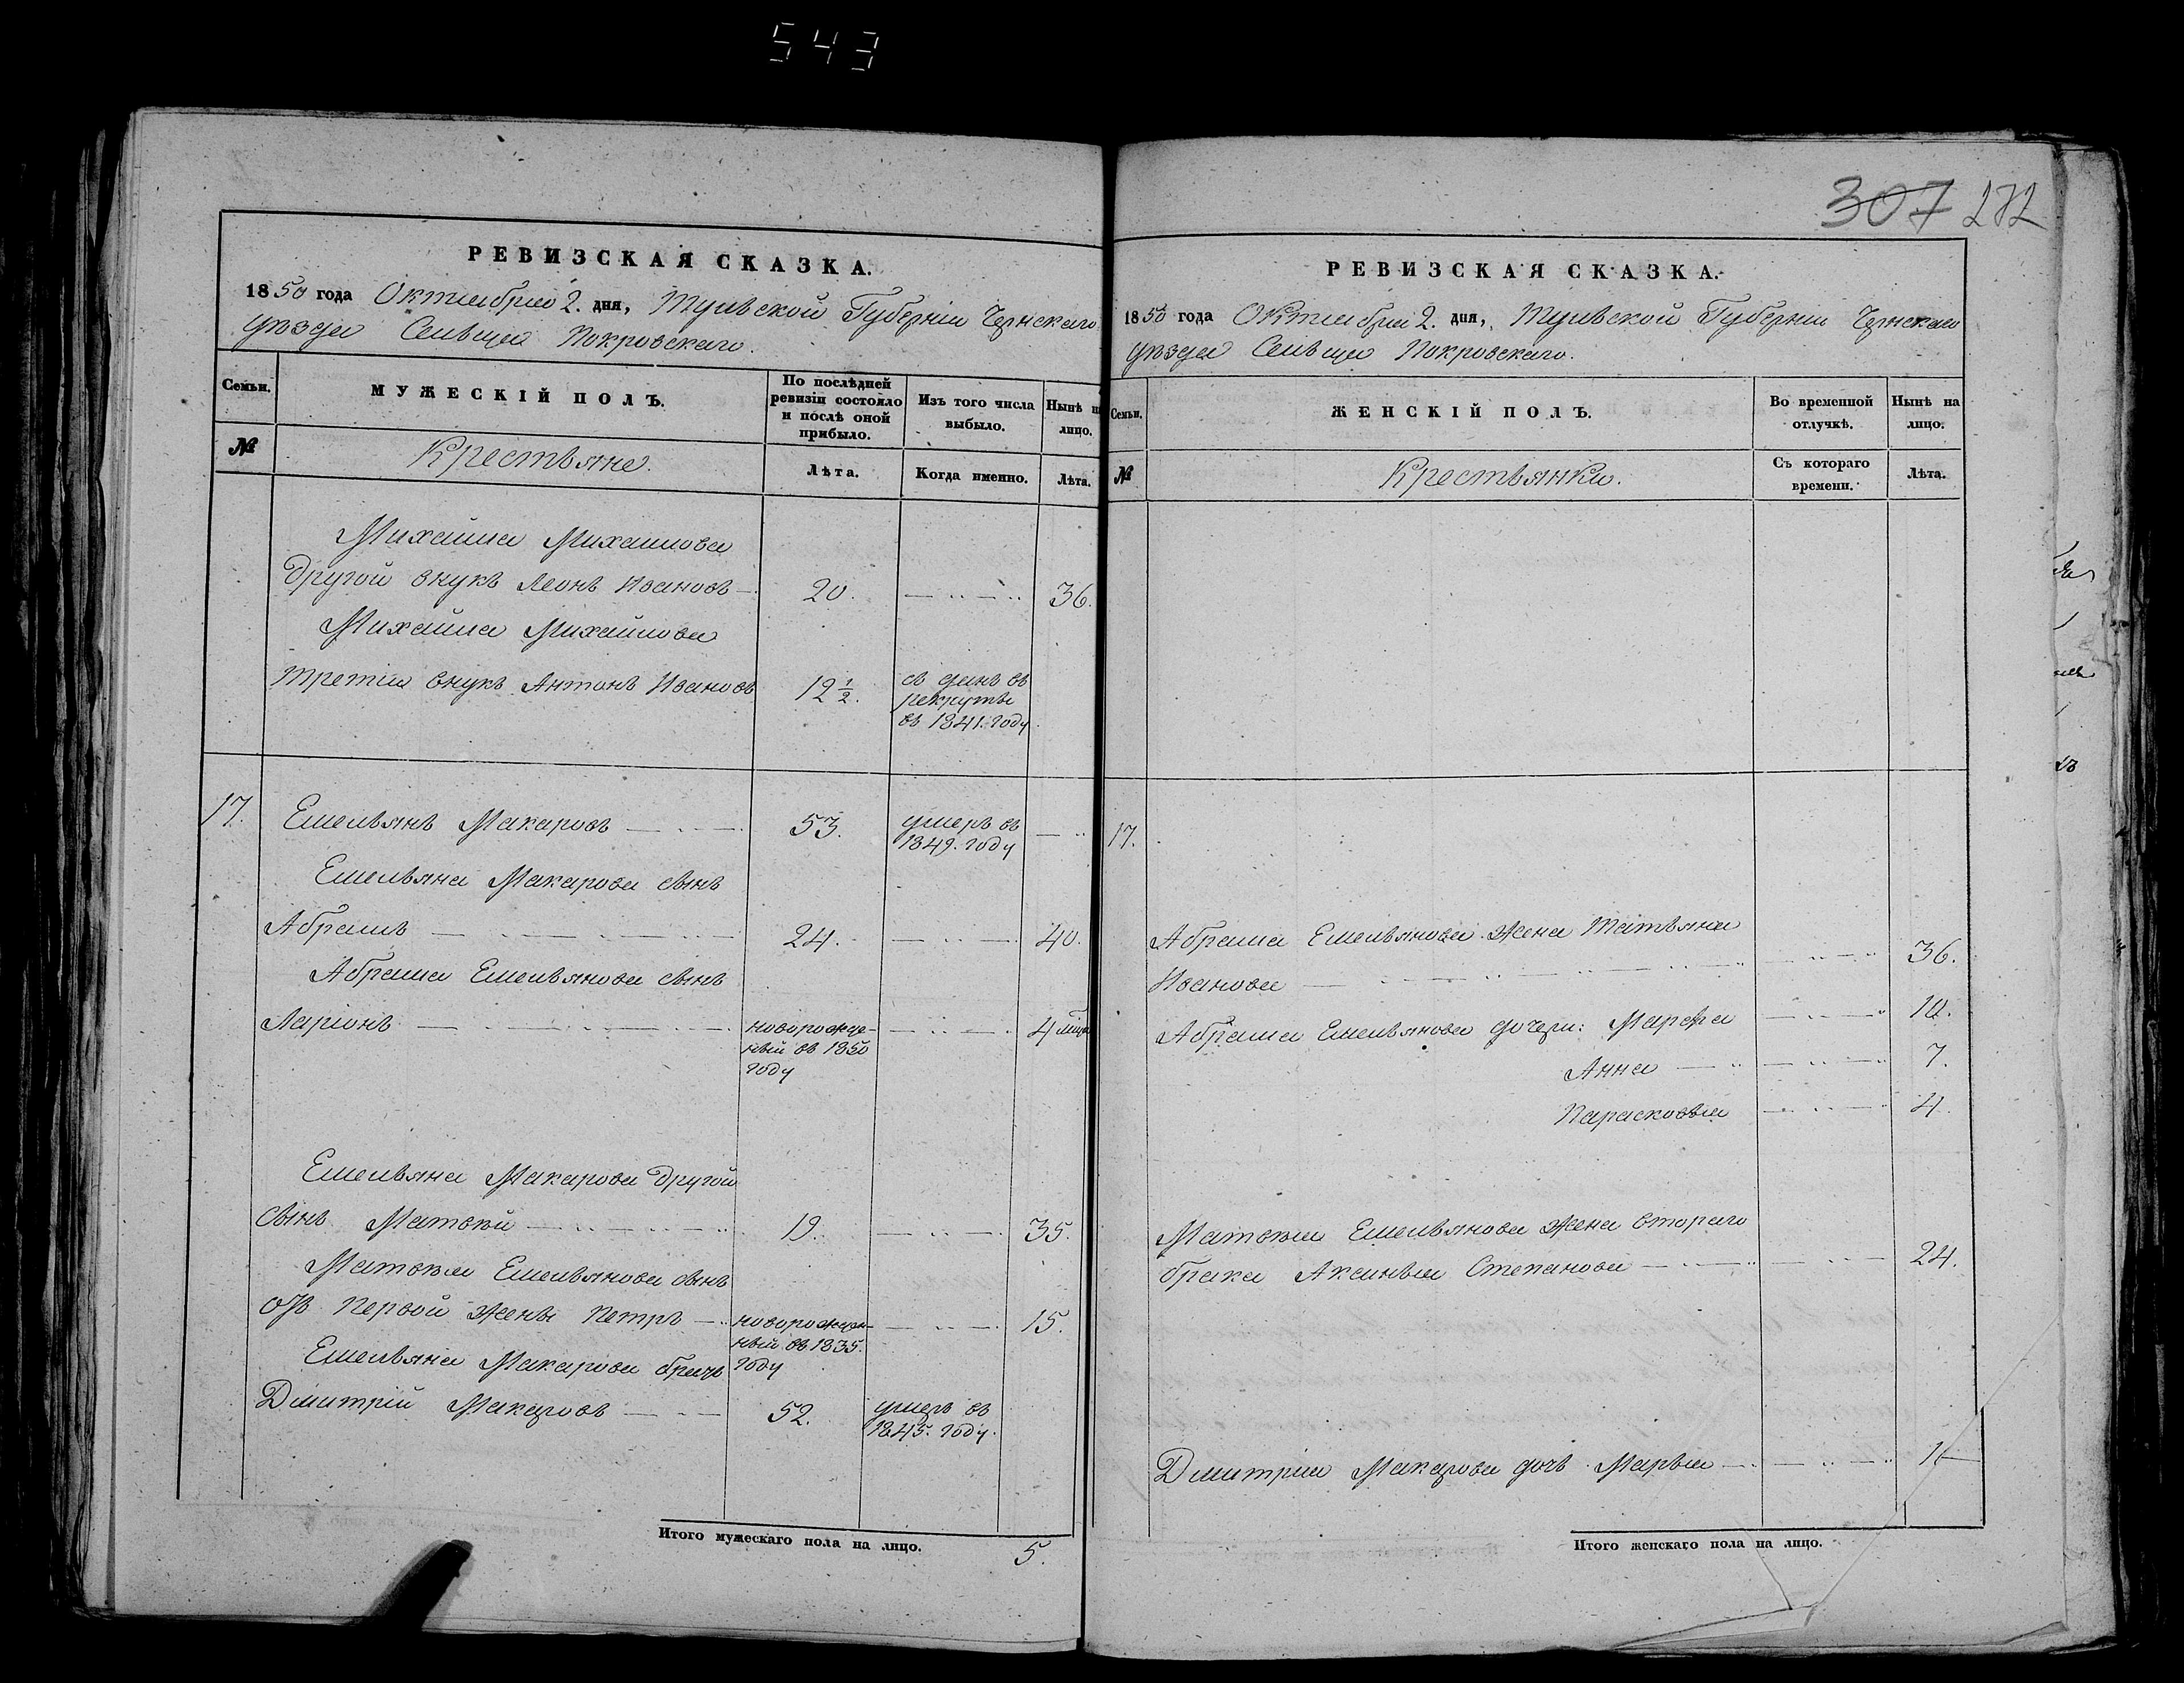 543
РЕВИЗСКАЯ СКАЗКА.
1850 года Октября 2. дня, Тульской Губерніи Чернскаго
уѣзда Сельца Покровскаго.
Семьи.
МУЖЕСКІЙ ПОЛЪ.
По послѣдней
ревизіи состояло
и послѣ оной
прибыло.
Изъ того числа
выбыло.
Нынѣ н
лицо.
№
Крестьяне.
Лѣта.
Когда именно.
Лѣта.
Михайла Михайлова
другой внукъ Леонъ Ивановъ 20. 36.
Михайла Михайлова
третій внукъ Антонъ Ивановъ 12 ½.
въ рекруты
въ 1841. году
17. Емельянъ Макаровъ 53. умеръ въ
1849. году
Емельяна Макарова сынъ
Абрамъ 24. 40.
Абрама Емельянова сынъ
Ларіонъ новорожде-
ный въ 1850
году
4 мѣся
Емельяна Макарова другой
сынъ Матвѣй 19. 35.
Матвѣя Емельянова сынъ
отъ первой жены Петръ новорожден-
ный въ 1835.
году
15.
Емельяна Макарова братъ
Дмитрій Макаровъ 52. умеръ въ
1845. году.
Итого мужескаго пола на лицо. 5.
307 282
РЕВИЗСКАЯ СКАЗКА.
1850 года Октября 2. дня, Тульской Губерніи Чернскаго
уѣзда Сельца Покровскаго.
Семьи.
ЖЕНСКІЙ ПОЛЪ.
Во временной
отлучкѣ.
Нынѣ на
лицо.
№
Крестьянки.
Съ котораго
времени.
Лѣта.
17.
Абрама Емельянова жена Татьяна
Иванова 36.
Абрама Емельянова дочери: Марфа 10.
Анна 7.
Парасковья 4.
Матвѣя Емельянова жена втораго
брака Аксинья Степанова 24.
Дмитрія Макарова дочь Марья
Итого женскаго пола на лицо.